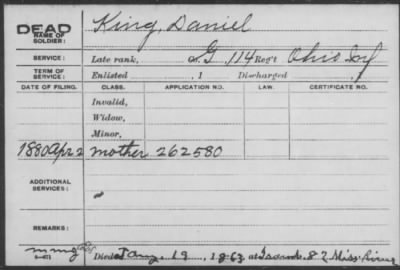 DEAD King, Daniel
NAME OF
SOLDIER:
SERVICE: Late rank, Co. G, 114 Reg't Ohio Inf
TERM OF
SERVICE: Enlisted , 1 Discharged , 1
DATE OF FILING. CLASS. APPLICATION NO. LAW. CERTIFICATE NO.
Invalid,
Widow,
Minor,
1880 Apr 2 mother 262580
ADDITIONAL
SERVICES:
REMARKS:
Died 19, 1863, at Islands 82 Miss. River